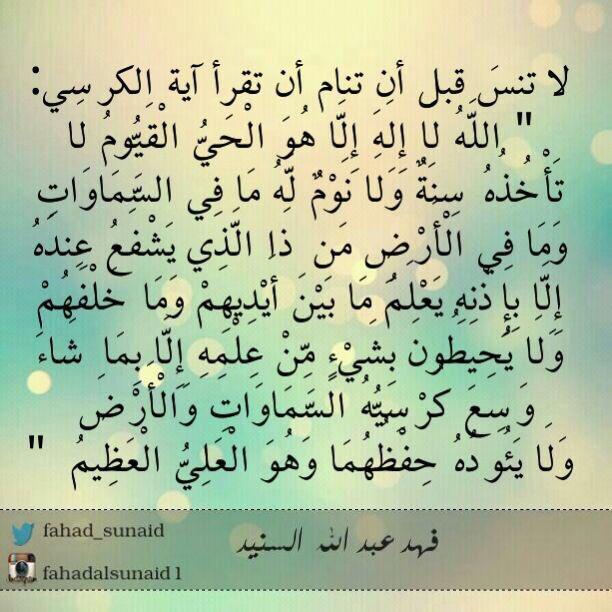 لا تنسَ قبل أن تنام أن تقرأ آية الكرسي:
" اللَّهُ لا إِلهَ إِلَّا هُوَ الْحَيُّ الْقَيُّومُ لا
تَأْخُذُهُ سِنَةٌ وَلَا نَوْمٌ لَّهُ مَا فِي السَّمَاوَاتِ
وَمَا فِي الْأَرْضِ مَن ذَا الَّذِي يَشْفَعُ عِندَهُ
إِلَّا بِإِذْنِهِ يَعْلَمُ مَا بَيْنَ أَيْدِيهِمْ وَمَا خَلْفَهُمْ
وَلَا يُحِيطُونَ بِشَيْءٍ مِّنْ عِلْمِهِ إِلَّا بِمَا شَاءَ
وَسِعَ كُرْسِيُّهُ السَّمَاوَاتِ وَالْأَرْضَ
وَلَا يَئُودُهُ حِفْظُهُمَا وَهُوَ الْعَلِيُّ الْعَظِيمُ "
فهد عبد الله السنيد
fahad_sunaid
fahadalsunaid1